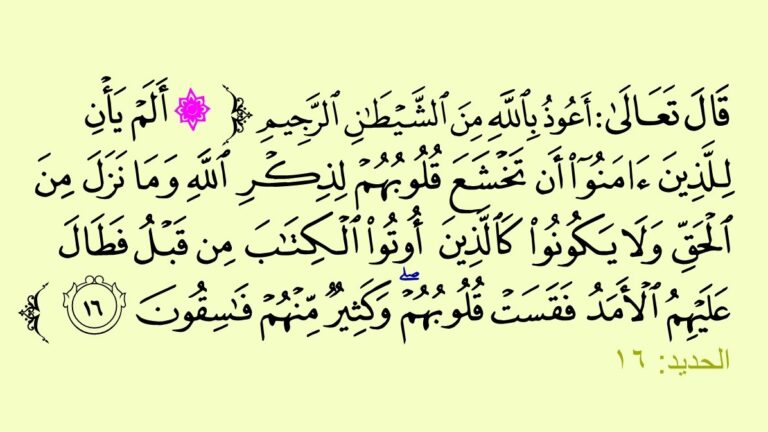 قَالَ تَعَالَىٰ: أَعُوذُ بِٱللَّهِ مِنَ ٱلشَّيۡطَٰنِ ٱلرَّجِيمِ ﴿ ۞ أَلَمۡ يَأۡنِ
لِلَّذِينَ ءَامَنُوٓاْ أَن تَخۡشَعَ قُلُوبُهُمۡ لِذِكۡرِ ٱللَّهِ وَمَا نَزَلَ مِنَ
ٱلۡحَقِّ وَلَا يَكُونُواْ كَٱلَّذِينَ أُوتُواْ ٱلۡكِتَٰبَ مِن قَبۡلُ فَطَالَ
عَلَيۡهِمُ ٱلۡأَمَدُ فَقَسَتۡ قُلُوبُهُمۡۖ وَكَثِيرٞ مِّنۡهُمۡ فَٰسِقُونَ ١٦ ﴾
الحديد: ١٦